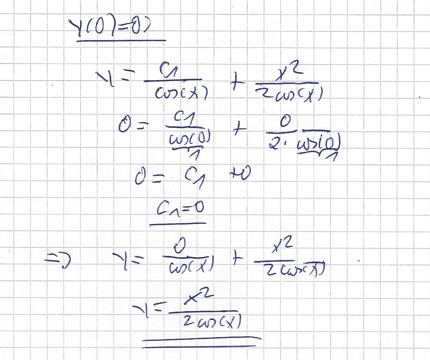 y(0)=0)
y = c1/cos(x) + x²/2cos(x)
0 = c1/cos(0) + 0/2·cos(0)
1 1
0 = c1 +0
c1=0
=> y = 0/cos(x) + x²/2cos(x)
y = x²/2cos(x)